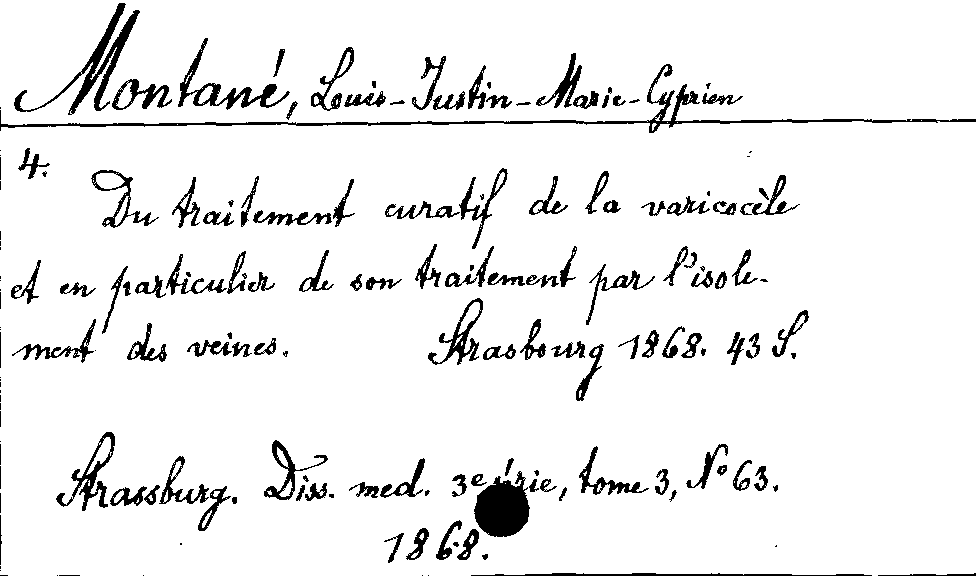 Montané, Louis-Justin-Marie-Cyprien
4.
Du traitement curatif de la varicocèle
et en particulier de son traitement par l'isole-
ment des veines. Strasbourg 1868. 43 S.
Strassburg. Diss. med. 3e série, tome 3, No 63.
1868.